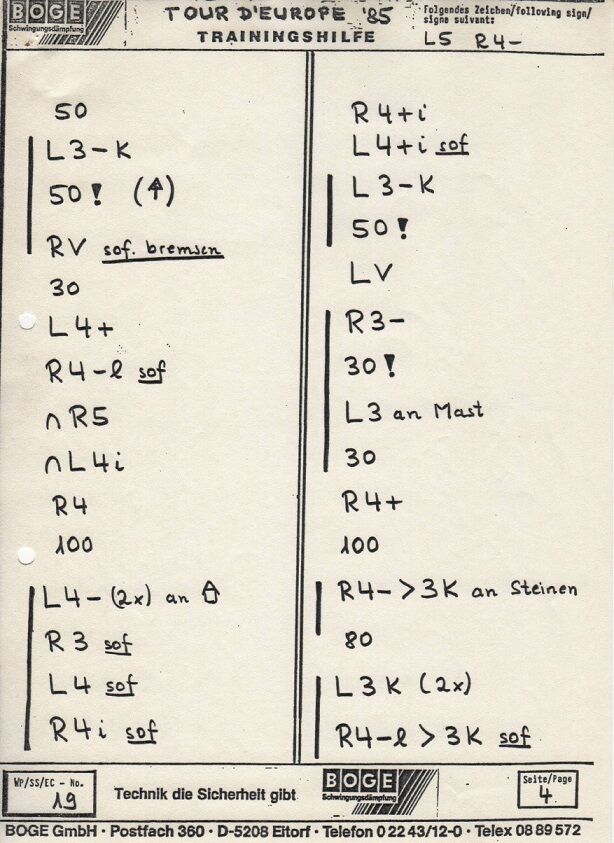 BOGE
Schwingungsdämpfung
TOUR D'EUROPE '85
TRAININGSHILFE
Folgendes Zeichen/following sign/
signe suivant:
L5 R4-
50
L3-K
50! (↑)
RV sof. bremsen
30
L4+
R4-l sof
∩ R5
∩ L4i
R4
100
L4-(2x) an ⇧
R3 sof
L4 sof
R4i sof
R4+i
L4+i sof
L3-K
50!
LV
R3-
30!
L3 an Mast
30
R4+
100
R4->3K an Steinen
80
L3K (2x)
R4-l>3K sof
WP/SS/EC - No.
19
Technik die Sicherheit gibt
BOGE
Schwingungsdämpfung
Seite/Page
4
BOGE GmbH · Postfach 360 · D-5208 Eitorf · Telefon 0 22 43/12-0 · Telex 08 89 572